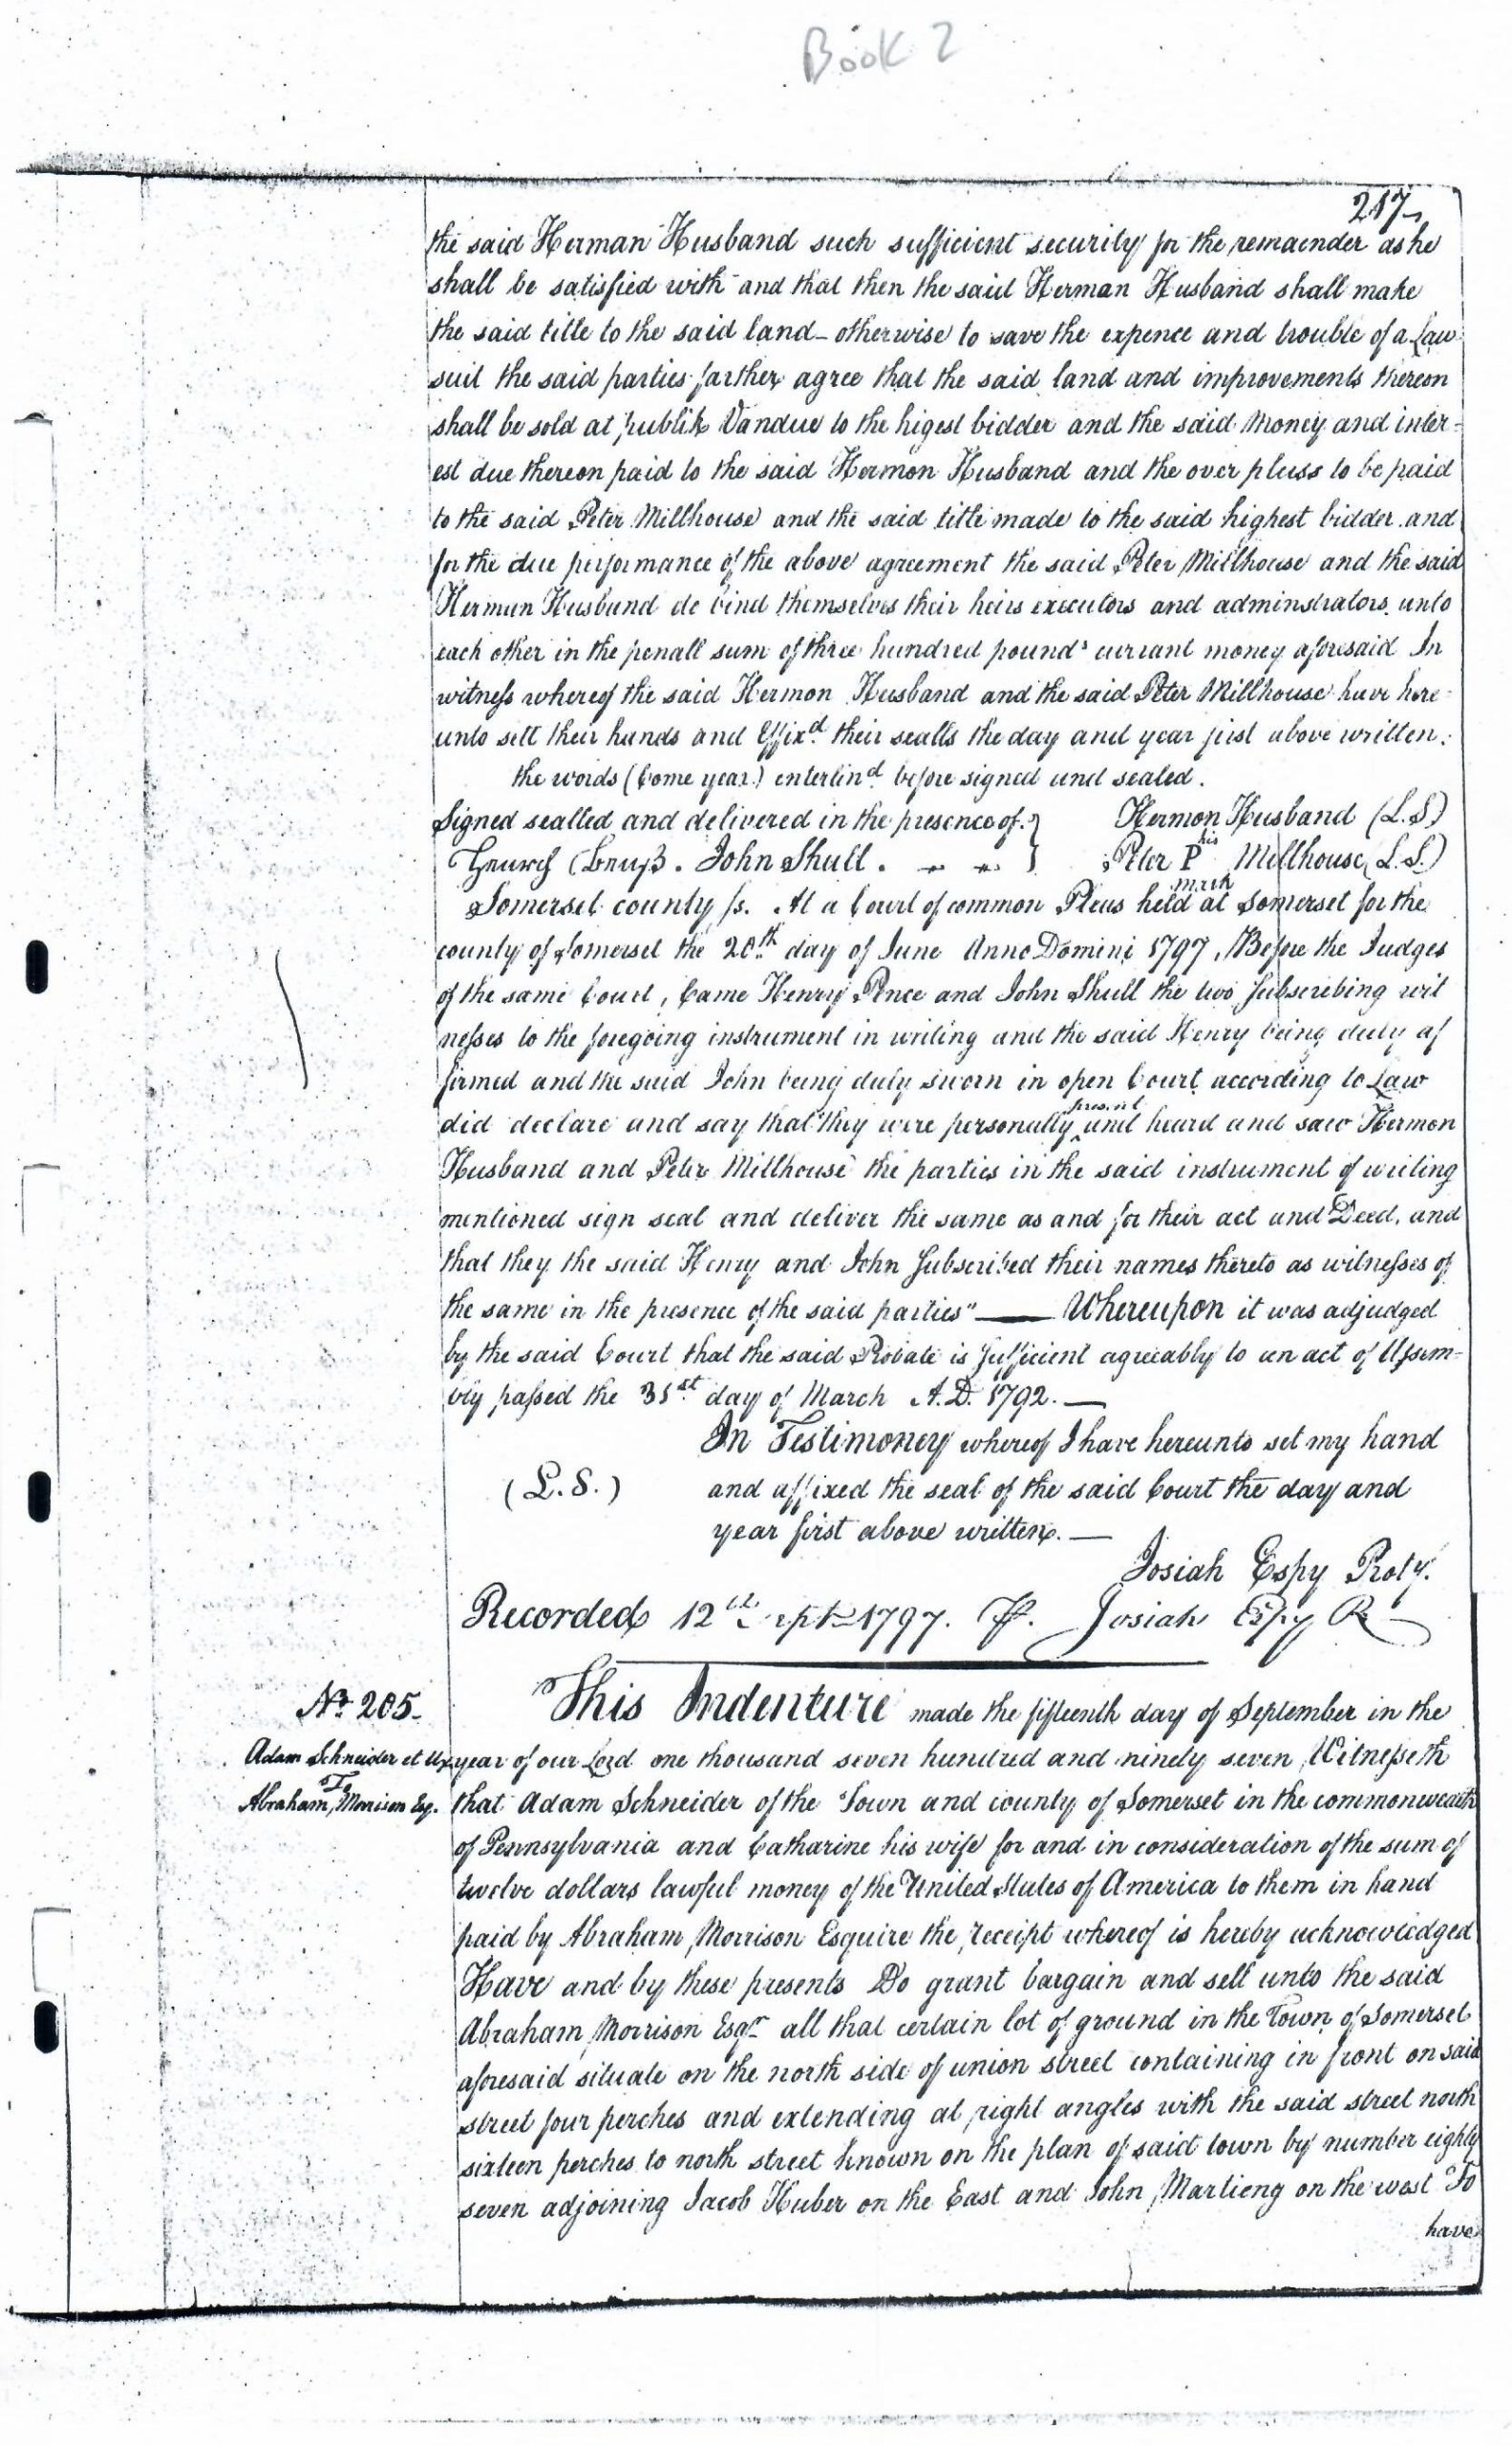 Book 2
217
the said Herman Husband such sufficient security for the remainder as he
shall be satisfied with and that then the said Herman Husband shall make
the said title to the said land - otherwise to save the expence and trouble of a Law
suit the said parties farther agree that the said land and improvements thereon
shall be sold at publik Vandue to the higest bidder and the said Money and inter=
est due thereon paid to the said Hermon Husband and the over pluss to be paid
to the said Peter Millhouse and the said title made to the said highest bidder and
for the due performance of the above agreement the said Peter Millhouse and the said
Herman Husband do bind themselves their heirs executors and adminstrators unto
each other in the penall sum of three hundred pounds currant money aforesaid In
witness whereof the said Hermon Husband and the said Peter Millhouse have here=
unto sett their hands and Effixd their sealls the day and year first above written.
the words (Come year) enterlind before signed and sealed.
Signed sealled and delivered in the presence of } Hermon Husband (L.S)
John Shull. Peter P his mark Millhouse (L.S.)
Somerset county ss. At a Court of common Pleas held at Somerset for the
county of Somerset the 20th day of June Anno Domini 1797, Before the Judges
of the same Court, Came Henry Pence and John Shull the two Subscribing wit
nesses to the foregoing instrument in writing and the said Henry being duly af
firmed and the said John being duly sworn in open Court according to Law
did declare and say that they were personally present and heard and saw Hermon
Husband and Peter Millhouse the parties in the said instrument of writing
mentioned sign seal and deliver the same as and for their act and Deed, and
that they the said Henry and John Subscribed their names thereto as witnesses of
the same in the presence of the said parties" — Whereupon it was adjudged
by the said Court that the said Probate is Sufficient agreeably to an act of Assem=
bly passed the 31st day of March A.D. 1792. —
In Testimoney whereof I have hereunto set my hand
(L.S.) and affixed the seal of the said Court the day and
year first above written. —
Josiah Espy Proty.
Recorded 12th Sept 1797. Josiah Espy R
No 205. This Indenture made the fifteenth day of September in the
Adam Schneider et Ux year of our Lord one thousand seven hundred and ninety seven Witnesseth
To
Abraham Morrison Esq. that Adam Schneider of the Town and county of Somerset in the commonwealth
of Pennsylvania and Catharine his wife for and in consideration of the sum of
twelve dollars lawful money of the United States of America to them in hand
paid by Abraham Morrison Esquire the receipt whereof is hereby acknowledged
Have and by these presents Do grant bargain and sell unto the said
Abraham Morrison Esqr all that certain lot of ground in the Town of Somerset
aforesaid situate on the north side of union street containing in front on said
street four perches and extending at right angles with the said street north
sixteen perches to north street known on the plan of said town by number eighty
seven adjoining Jacob Huber on the East and John Martieng on the west To
have